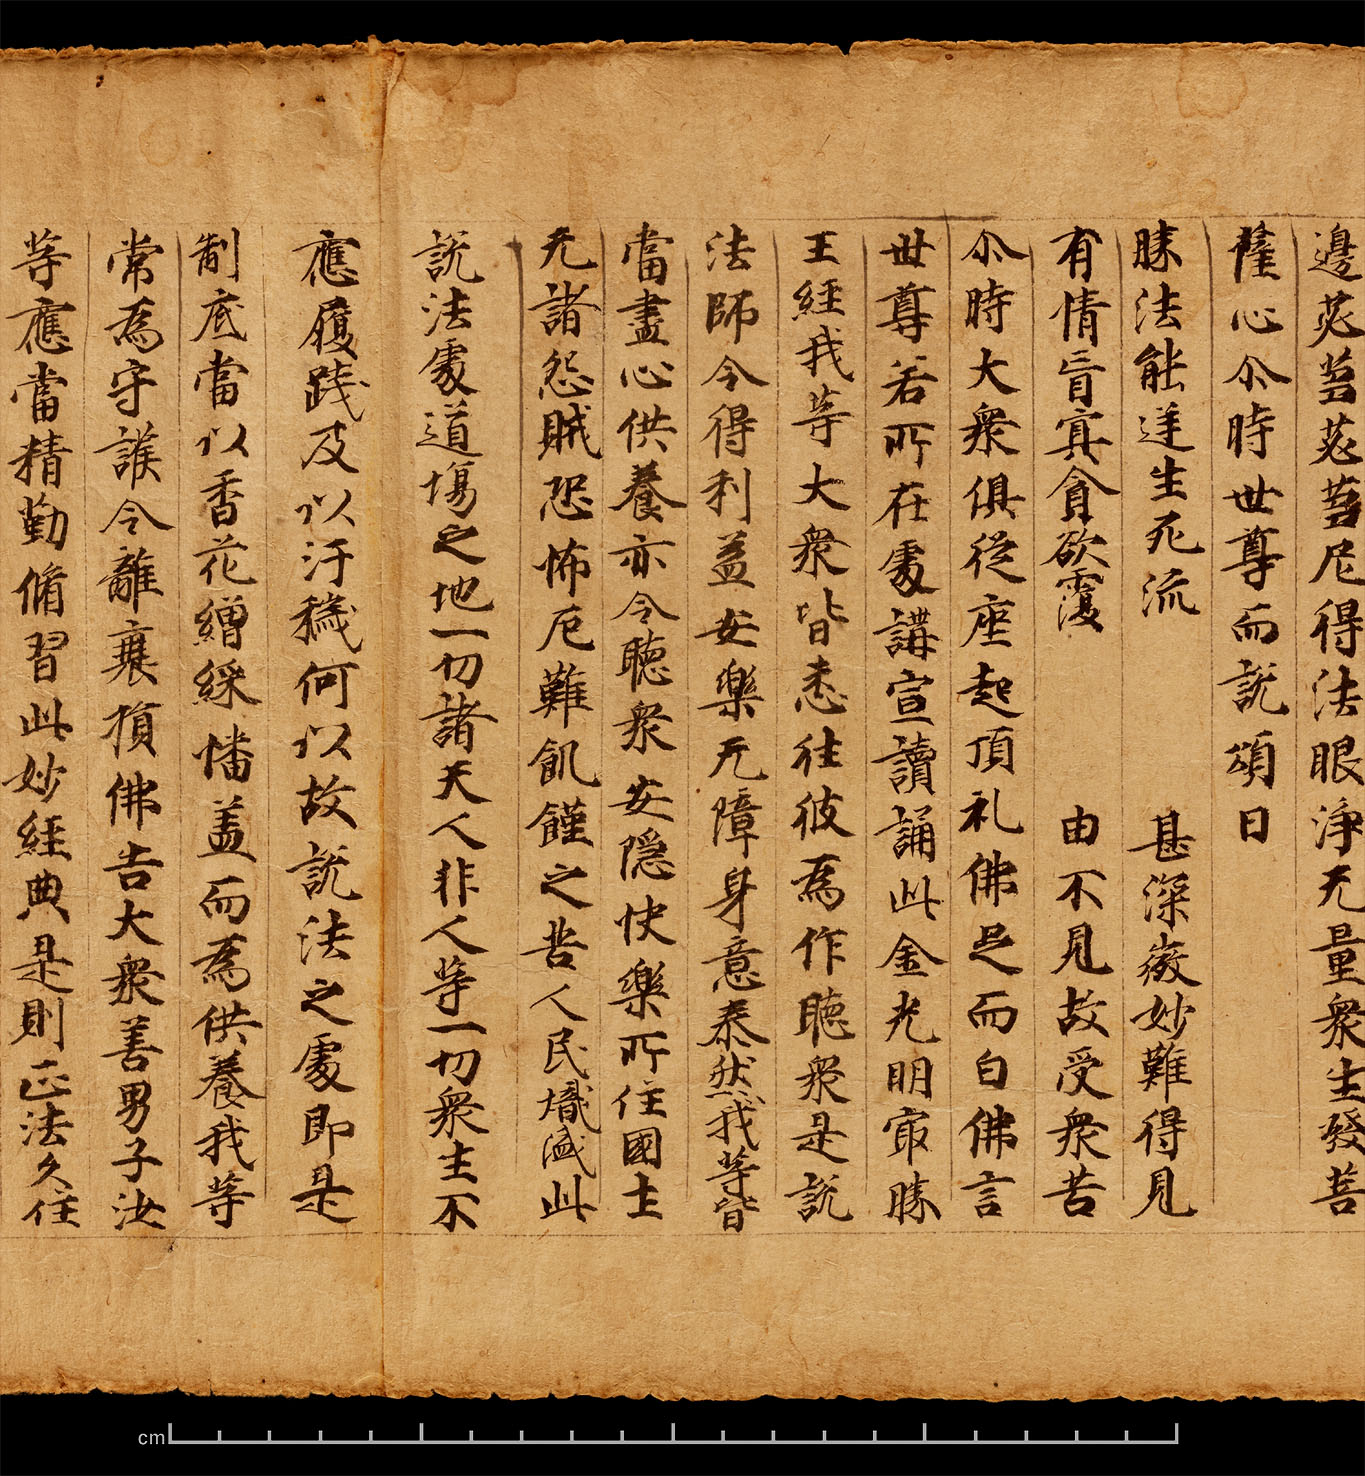 邊苾蒭苾蒭尼得法眼淨无量衆生發菩
薩心尒時世尊而說頌曰
勝法能逆生死流　甚深微妙難得見
有情盲冥貪欲覆　由不見故受衆苦
尒時大衆俱從座起頂礼佛足而白佛言
世尊若所在處講宣讀誦此金光明冣勝
王經我等大衆皆悉往彼為作聽衆是說
法師令得利益安樂无障身意泰然我等皆
當盡心供養亦令聽衆安隱快樂所住國土
无諸怨賊恐怖厄難飢饉之苦人民熾盛此
說法處道場之地一切諸天人非人等一切衆生不
應履踐及以汙穢何以故說法之處即是
制底當以香花繒綵幡盖而為供養我等
常為守護令離衰損佛告大衆善男子汝
等應當精勤脩習此妙經典是則正法久住
cm